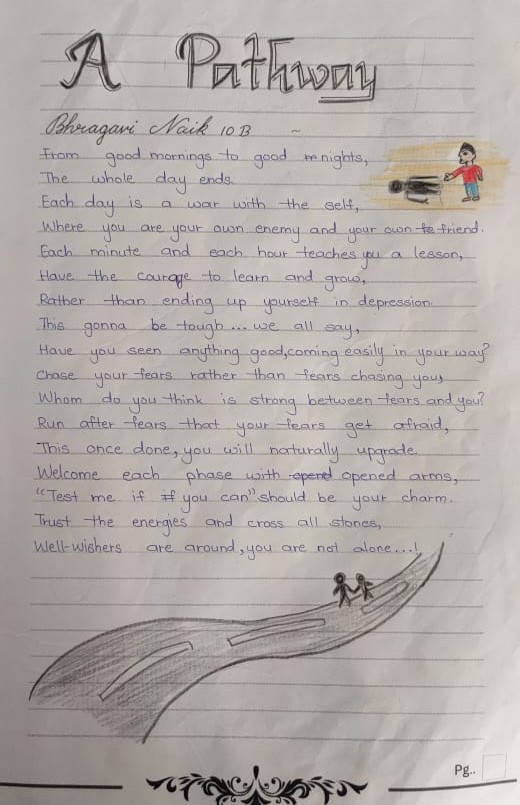 A Pathway
Bhragavi Naik 10 B ~
From good mornings to good nights,
The whole day ends.
Each day is a war with the self,
Where you are your own enemy and your own friend.
Each minute and each hour teaches you a lesson,
Have the courage to learn and grow,
Rather than ending up yourself in depression.
This gonna be tough ... we all say,
Have you seen anything good, coming easily in your way?
Chase your fears rather than fears chasing you,
Whom do you think is strong between fears and you?
Run after fears that your fears get afraid,
This once done, you will naturally upgrade.
Welcome each phase with opened arms,
"Test me if you can" should be your charm.
Trust the energies and cross all stones,
Well-wishers are around, you are not alone...!
Pg..